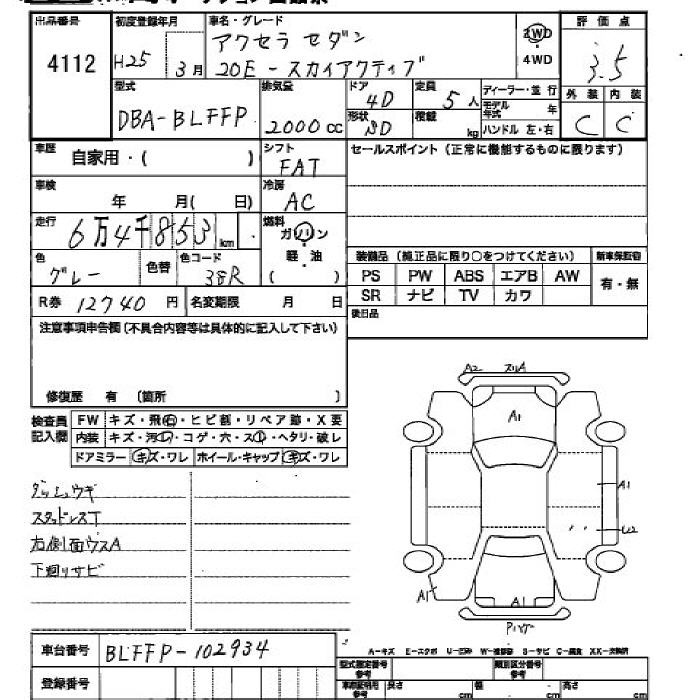 出品番号 初度登録年月 車名・グレード 評価点
4112 H25 3月 アクセラ セダン 2WD 3.5
20E-スカイアクティブ 4WD
型式 排気量 ドア 4D 定員 5人 ディーラー・並行 外装 内装
DBA-BLFFP 2000cc 形状 SD 積載 kg モデル年式 年 C C
ハンドル 左・右
車歴 自家用・( ) シフト FAT セールスポイント(正常に機能するものに限ります)
車検 年 月( 日) 冷房 AC
走行 6万4千853km 燃料 ガソリン
軽・油
( )
色 グレー 色替 色コード 38R 装備品(純正品に限り○をつけてください) 新車保証書
PS PW ABS エアB AW 有・無
R券 12740円 名変期限 月 日 SR ナビ TV カワ
注意事項申告欄(不具合内容等は具体的に記入して下さい) 後日品
修復歴 有 (箇所 )
検査員記入欄 FW キズ・飛石・ヒビ割・リペア跡・X要
内装 キズ・汚レ・コゲ・穴・スレ・ヘタリ・破レ
ドアミラー キズ・ワレ ホイール・キャップ キズ・ワレ
A2 スリA
A1
A1
U2
A1 A1
スタッドレスT
右側面ウスA
下廻りサビ
車台番号 BLFFP-102934
登録番号
A-キズ E-エクボ U-凹み W-補修跡 S-サビ C-腐食 XX-交換済
型式指定番号 参考 類別区分番号 参考
長さ cm 幅 cm 高さ cm